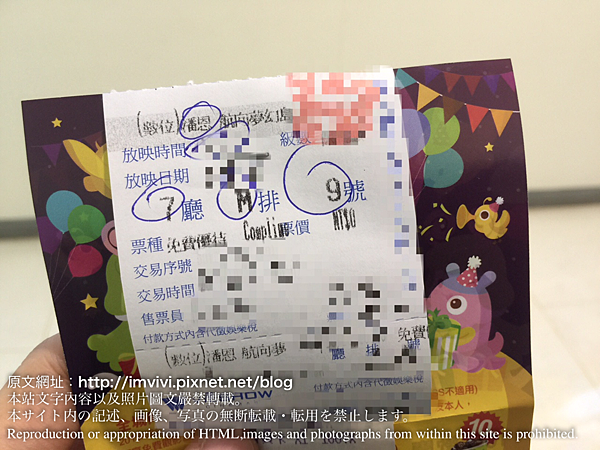 (數位)潘恩 航向夢幻島
放映時間 級數
放映日期
7廳 M排 9號
票種 免費優待 票價 NT$0
交易序號
交易時間
售票員
付款方式內含代徵娛樂稅
免費
(數位)潘恩 航向夢 廳 排 號
付款方式內含代徵娛樂稅
不適用)
10
原文網址：http://imvivi.pixnet.net/blog
本站文字內容以及照片圖文嚴禁轉載。
本サイト内の記述、画像、写真の無断転載・転用を禁止します。
Reproduction or appropriation of HTML,images and photographs from within this site is prohibited.